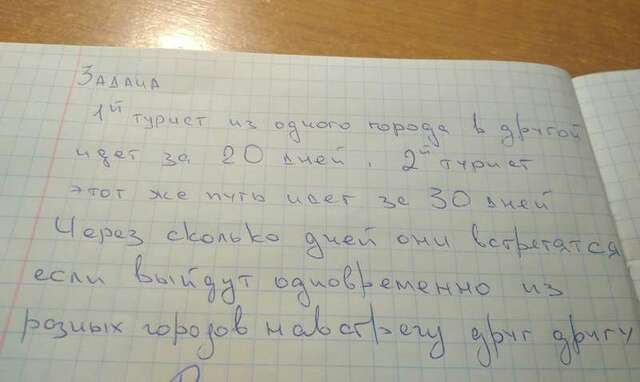 Задача
1й турист из одного города в другой
идет за 20 дней. 2й турист
этот же путь идет за 30 дней
Через сколько дней они встретятся
если выйдут одновременно из
разных городов навстречу друг другу